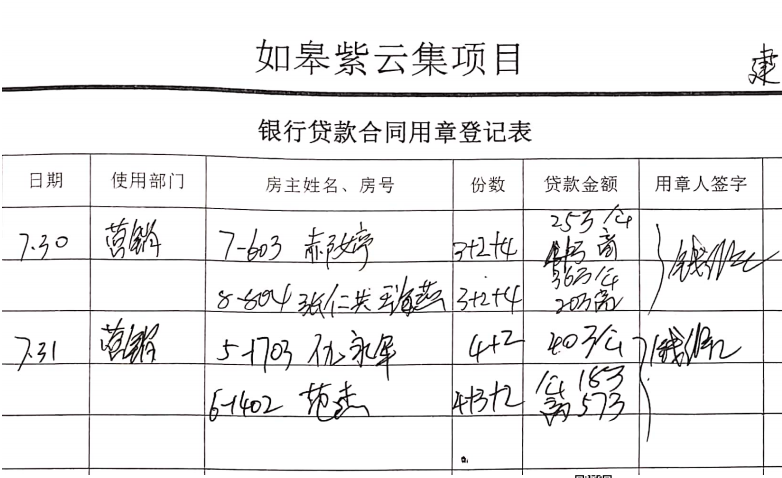 如皋紫云集项目
建
银行贷款合同用章登记表
日期 使用部门 房主姓名、房号 份数 贷款金额 用章人签字
7.30 营销 7-603 郝婷 3+2+4 25万/公 商
8-804 张仁 燕 3+2+4 36万/公 20万商
7.31 营销 5-1703 仇永军 4+2 40万/公 钱
6-1402 范杰 4+3+2 公18万 商57万